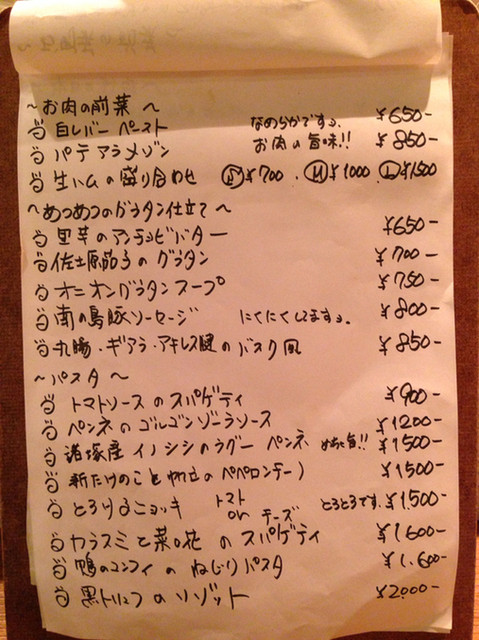 ～お肉の前菜～
白レバーペースト なめらかですよ、 ¥650-
パテアラメゾン お肉の旨味!! ¥850-
生ハムの盛り合わせ Ⓢ¥700 . Ⓜ¥1000 . Ⓛ¥1500
～あつあつのグラタン仕立て～
里芋のアンチョビバター ¥650-
佐土原茄子のグラタン ¥700-
オニオングラタンスープ ¥750-
南の島豚ソーセージ にくにくしてますよ、 ¥800-
丸腸・ギアラ・アキレス腱のバスク風 ¥850-
～パスタ～
トマトソースのスパゲティ ¥900-
ペンネのゴルゴンゾーラソース ¥1200-
諸塚産イノシシのラグーペンネ めちゃ旨!! ¥1500-
新たけのこと帆立のペペロンチーノ ¥1500-
とろけるニョッキ トマト or チーズ とろとろです、 ¥1.500-
カラスミと菜の花のスパゲティ ¥1600-
鴨のコンフィのねじりパスタ ¥1.600-
黒トリュフのリゾット ¥2000-